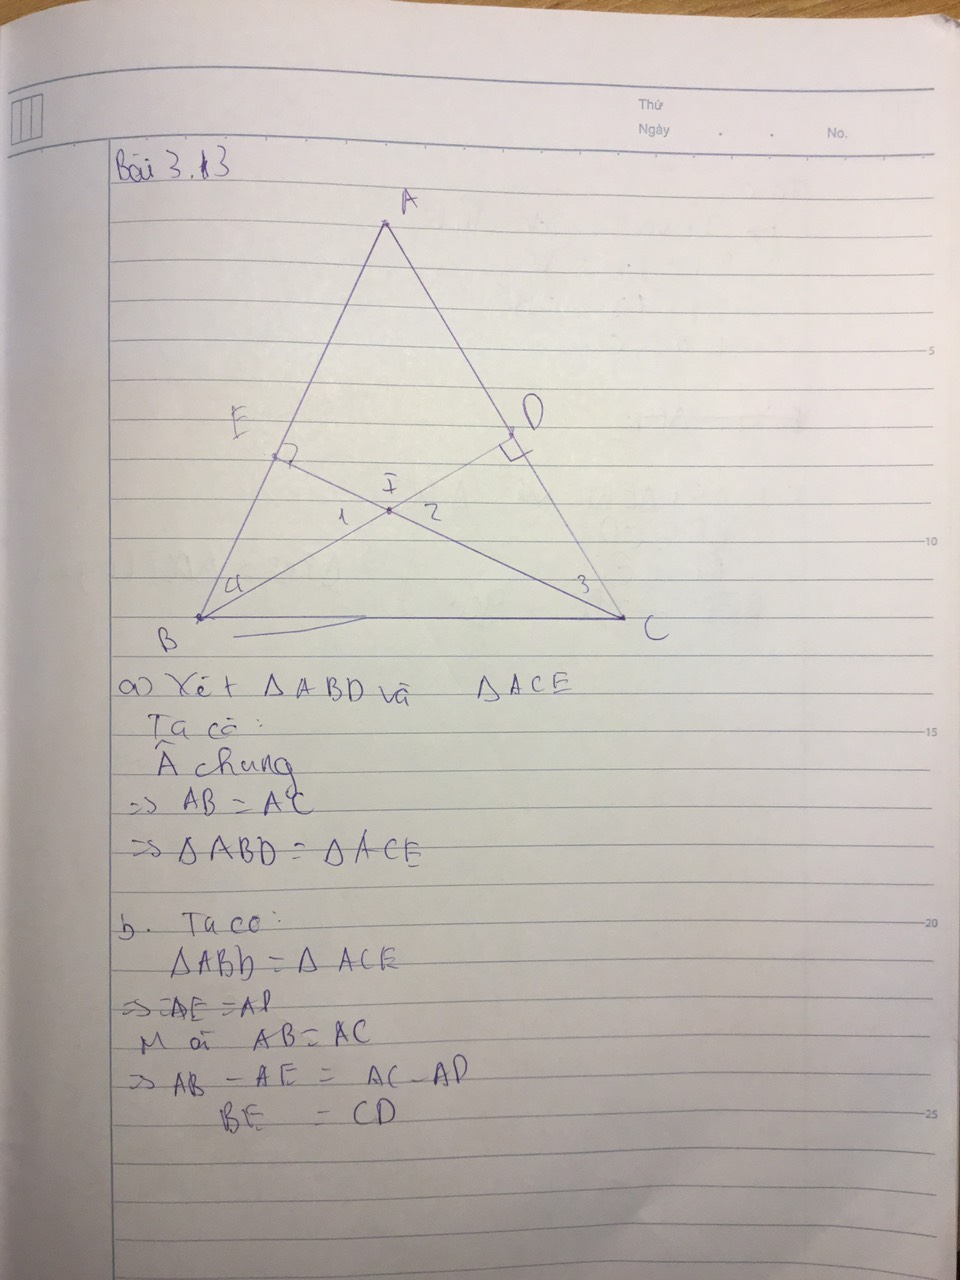 Thứ
Ngày . . No.
Bài 3.13
A
E
D
I
1 2
4 3
B C
a) Xét Δ ABD và Δ ACE
Ta có:
Â chung
=> AB = AC
=> Δ ABD = Δ ACE
b. Ta co:
Δ ABD = Δ ACE
=> AE = AD
Mà AB = AC
=> AB - AE = AC - AD
BE = CD
5
10
15
20
25